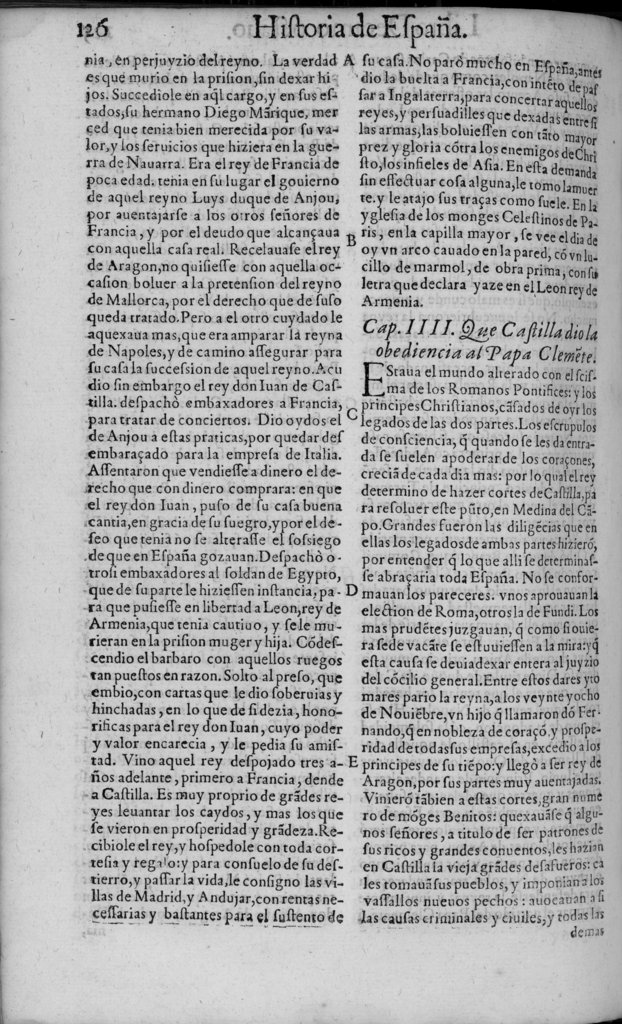 126 Historia de España.
nia, en perjuyzio del reyno. La verdad
es que murio en la prision, sin dexar hi-
jos. Succediole en aq̃l cargo, y en sus es-
tados, su hermano Diego Mãrique, mer
ced que tenia bien merecida por su va-
lor, y los seruicios que hiziera en la gue-
rra de Nauarra. Era el rey de Francia de
poca edad. tenia en su lugar el gouierno
de aquel reyno Luys duque de Anjou,
por auentajarse a los otros señores de
Francia, y por el deudo que alcançaua
con aquella casa real. Recelauase el rey
de Aragon, no quisiesse con aquella oc-
casion boluer a la pretension del reyno
de Mallorca, por el derecho que de suso
queda tratado. Pero a el otro cuydado le
aquexaua mas, que era amparar la reyna
de Napoles, y de camino assegurar para
su casa la succession de aquel reyno. Acu
dio sin embargo el rey don Iuan de Cas-
tilla. despachò embaxadores a Francia,
para tratar de conciertos. Dio oydos el
de Anjou a estas praticas, por quedar des
embaraçado para la empresa de Italia.
Assentaron que vendiesse a dinero el de-
recho que con dinero comprara: en que
el rey don Iuan, puso de su casa buena
cantia, en gracia de su suegro, y por el de-
seo que tenia no se alterasse el sossiego
de que en España gozauan. Despachò o-
trosi embaxadores al soldan de Egypto,
que de su parte le hiziessen instancia, pa-
ra que pusiesse en libertad a Leon, rey de
Armenia, que tenia cautiuo, y se le mu-
rieran en la prision muger y hija. Cõdes-
cendio el barbaro con aquellos ruegos
tan puestos en razon. Solto al preso, que
embio, con cartas que le dio soberuias y
hinchadas, en lo que de si dezia, hono-
rificas para el rey don Iuan, cuyo poder
y valor encarecia, y le pedia su amis-
tad. Vino aquel rey despojado tres a-
ños adelante, primero a Francia, dende
a Castilla. Es muy proprio de grãdes re-
yes leuantar los caydos, y mas los que
se vieron en prosperidad y grãdeza. Re-
cibiole el rey, y hospedole con toda cor-
tesia y regalo: y para consuelo de su des-
tierro, y passar la vida, le consigno las vi-
llas de Madrid, y Andujar, con rentas ne-
cessarias y bastantes para el sustento de
A
B
C
D
E
su casa. No parò mucho en España, antes
dio la buelta a Francia, con intẽto de pas
sar a Ingalaterra, para concertar aquellos
reyes, y persuadilles que dexadas entre si
las armas, las boluiessen con tãto mayor
prez y gloria cõtra los enemigos de Chri
sto, los infieles de Asia. En esta demanda
sin effectuar cosa alguna, le tomo la muer
te. y le atajo sus traças como suele. En la
yglesia de los monges Celestinos de Pa-
ris, en la capilla mayor, se vee el dia de
oy vn arco cauado en la pared, cõ vn lu-
cillo de marmol, de obra prima, con su
letra que declara yaze en el Leon rey de
Armenia.
Cap. IIII. Que Castilla dio la
obediencia al Papa Clemẽte.
EStaua el mundo alterado con el scis-
ma de los Romanos Pontifices: y los
principes Christianos, cãsados de oyr los
legados de las dos partes. Los escrupulos
de consciencia, q̃ quando se les da entra-
da se suelen apoderar de los coraçones,
creciã de cada dia mas: por lo qual el rey
determino de hazer cortes de Castilla, pa
ra resoluer este pũto, en Medina del Cã-
po. Grandes fueron las diligẽcias que en
ellas los legados de ambas partes hizierõ,
por entender q̃ lo que alli se determinas-
se abraçaria toda España. No se confor-
mauan los pareceres. vnos aprouauan la
election de Roma, otros la de Fundi. Los
mas prudẽtes juzgauan, q̃ como si ouie-
ra sede vacãte se estuuiessen a la mira: y q̃
esta causa se deuia dexar entera al juyzio
del cõcilio general. Entre estos dares y to
mares pario la reyna, a los veynte y ocho
de Nouiẽbre, vn hijo q̃ llamaron dõ Fer-
nando, q̃ en nobleza de coraçõ, y prospe-
ridad de todas sus empresas, excedio a los
principes de su tiẽpo: y llegò a ser rey de
Aragon, por sus partes muy auentajadas.
Vinierõ tãbien a estas cortes, gran nume
ro de mõges Benitos: quexauãse q̃ algu-
nos señores, a titulo de ser patrones de
sus ricos y grandes conuentos, les hazian
en Castilla la vieja grãdes desafueros: ca
les tomauã sus pueblos, y imponian a los
vassallos nueuos pechos: auocauan a si
las causas criminales y ciuiles, y todas las
demas